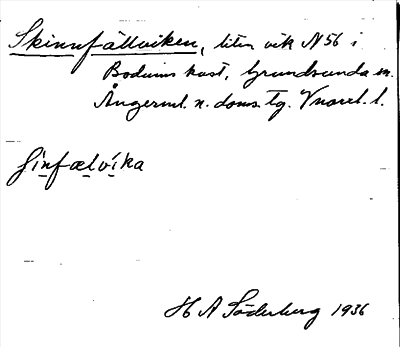 Skinnfällviken, liten vik N 56 i
Bodums kust, Grundsunda sn.
Ångerml. n. doms. tg. Vnorrl. l.
ʃinfælvika
H A Söderberg 1936